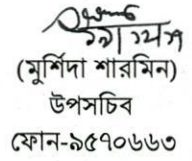 (মুর্শিদা শারমিন)
উপসচিব
ফোন-৯৫৭০৬৬৩